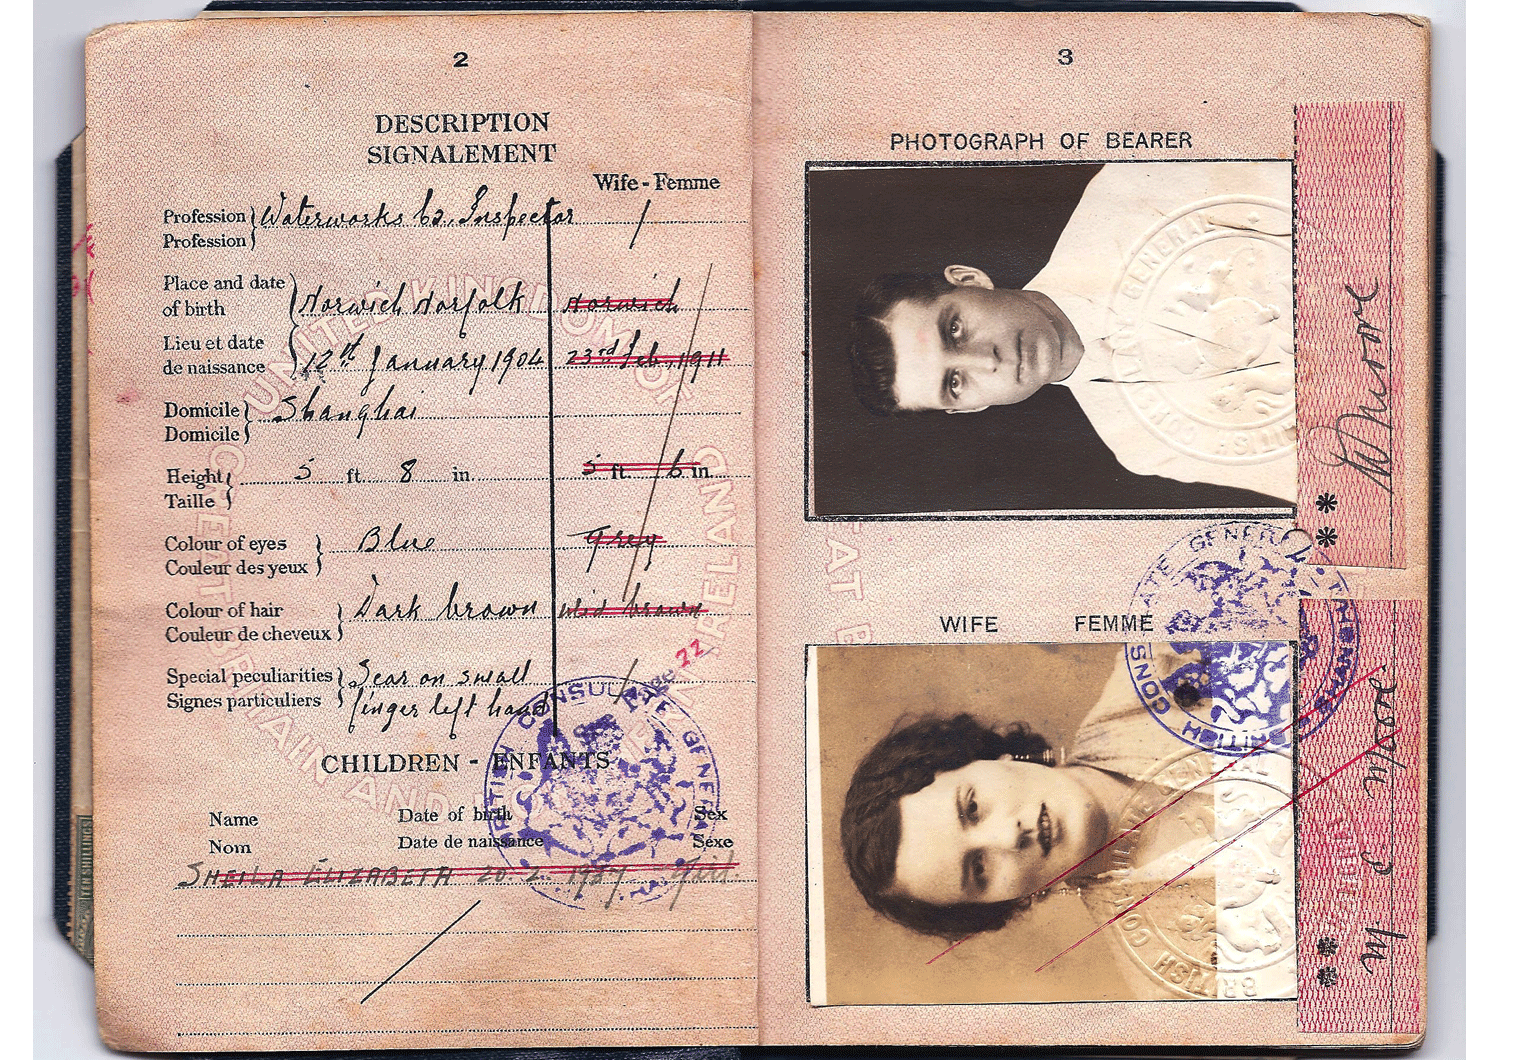 2
DESCRIPTION
SIGNALEMENT
Wife - Femme
Profession Waterworks Co. Inspector
Profession
Place and date
of birth Norwich Norfolk Norwich
Lieu et date
de naissance 12th January 1904 23rd Feb, 1911
Domicile Shanghai
Domicile
Height 5 ft. 8 in. 5 ft 6 in.
Taille
Colour of eyes Blue Grey
Couleur des yeux
Colour of hair Dark brown Mid brown
Couleur de cheveux
Special peculiarities Scar on small
Signes particuliers finger left hand
Page 22
CHILDREN - ENFANTS.
Name Date of birth Sex
Nom Date de naissance Sexe
SHEILA ELIZABETH 20. 2. 1937 Girl.
BRITISH CONSULATE GENERAL
UNITED KINGDOM OF GREAT BRITAIN AND IRELAND
TEN SHILLINGS
3
PHOTOGRAPH OF BEARER
Moore
WIFE FEMME
BRITISH CONSULATE GENERAL
M. E. Moore